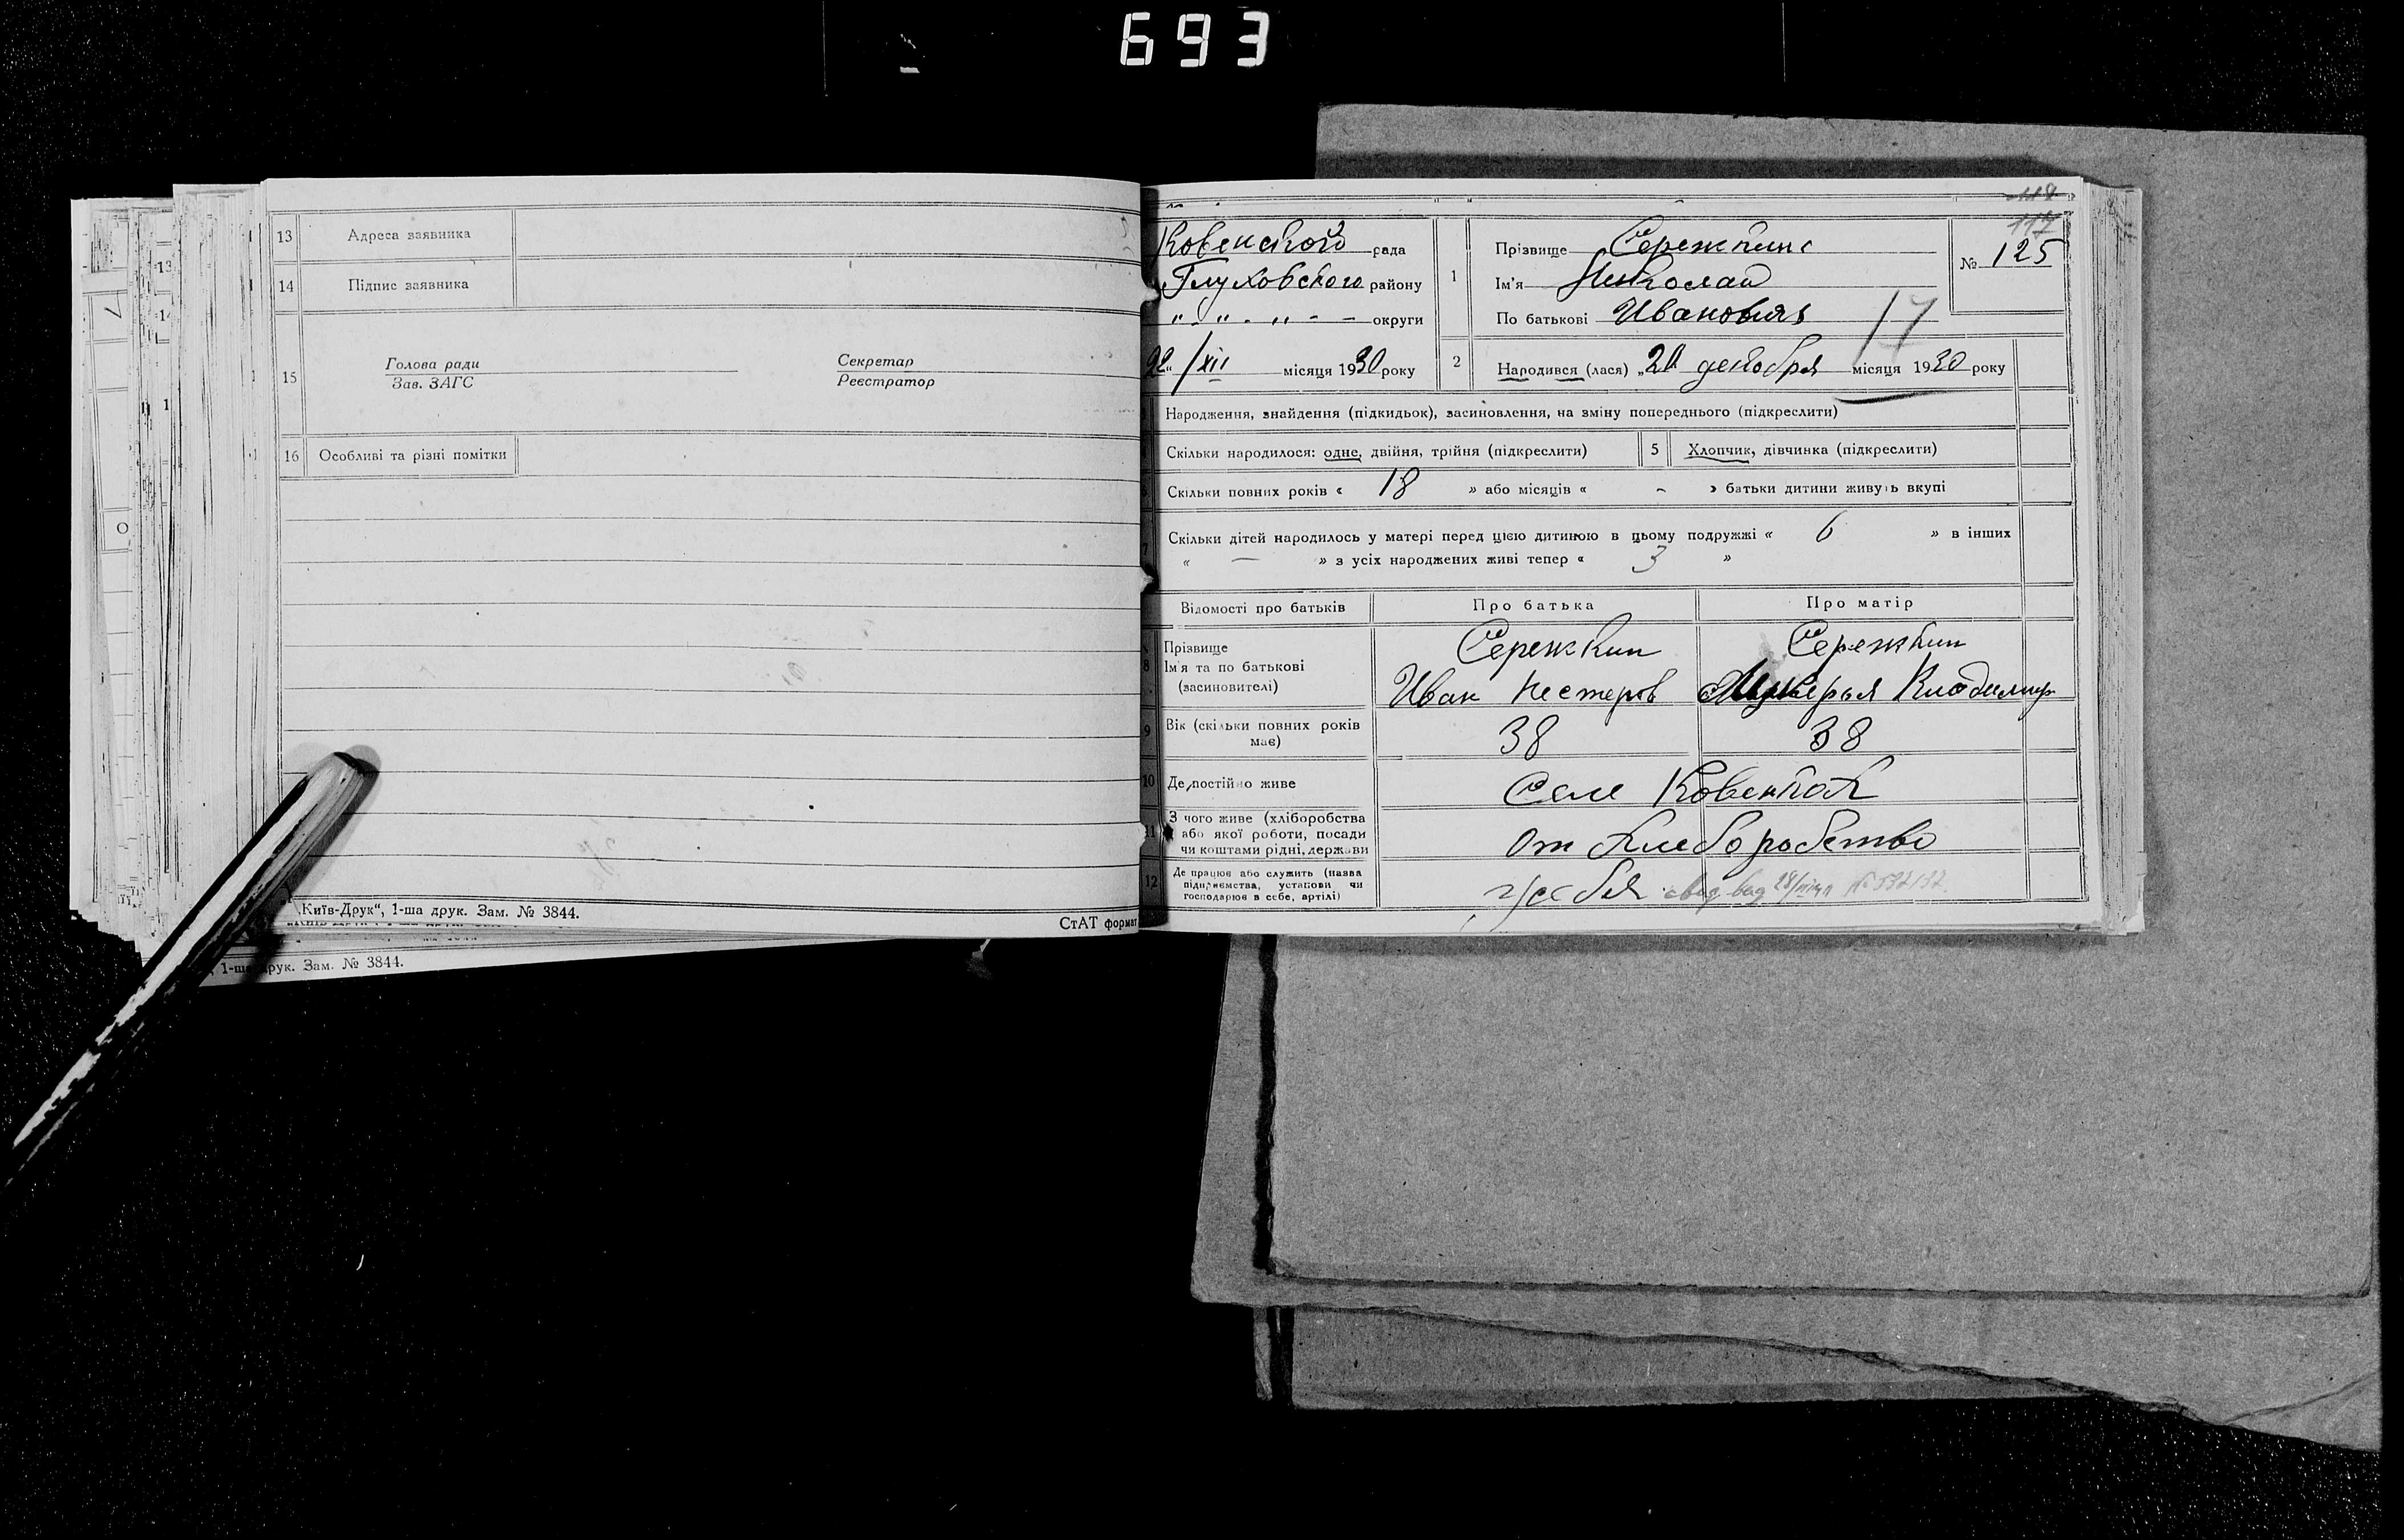 693
13 Адреса заявника
14 Підпис заявника
15 Голова ради Секретар
Зав. ЗАГС Реєстратор
16 Особливі та різні помітки
„Київ-Друк“, 1-ша друк. Зам. № 3844.
СтАТ формат
1-ша друк. Зам. № 3844.
118
117
Ковенской рада
Глуховского району
„ - „ - „ - - округи
22 /XII місяця 1930 року
1 Прізвище Сережкин
Ім'я Николай
По батькові Иванович 17
№ 125
2 Народився (лася) „20 декабря місяця 1930 року
Народження, знайдення (підкидьок), засиновлення, на зміну попереднього (підкреслити)
Скільки народилося: одне, двійня, трійня (підкреслити) 5 Хлопчик, дівчинка (підкреслити)
Скільки повних років « 18 » або місяців « – » батьки дитини живуть вкупі
7 Скільки дітей народилось у матері перед цією дитиною в цьому подружжі « 6 » в інших
« — » з усіх народжених живі тепер « 3 »
Відомості про батьків Про батька Про матір
8 Прізвище Сережкин Сережкин
Ім'я та по батькові Иван Нестеров Владимир
(засновителі)
9 Вік (скільки повних років має) 38 38
10 Де постійно живе Селе Ковенках
11 З чого живе (хліборобства
або якої роботи, посади От хлеборобства
чи коштами рідні, держави
12 Де працює або служить (назва
підприємства, установи чи
господарює в себе, артілі) у себя